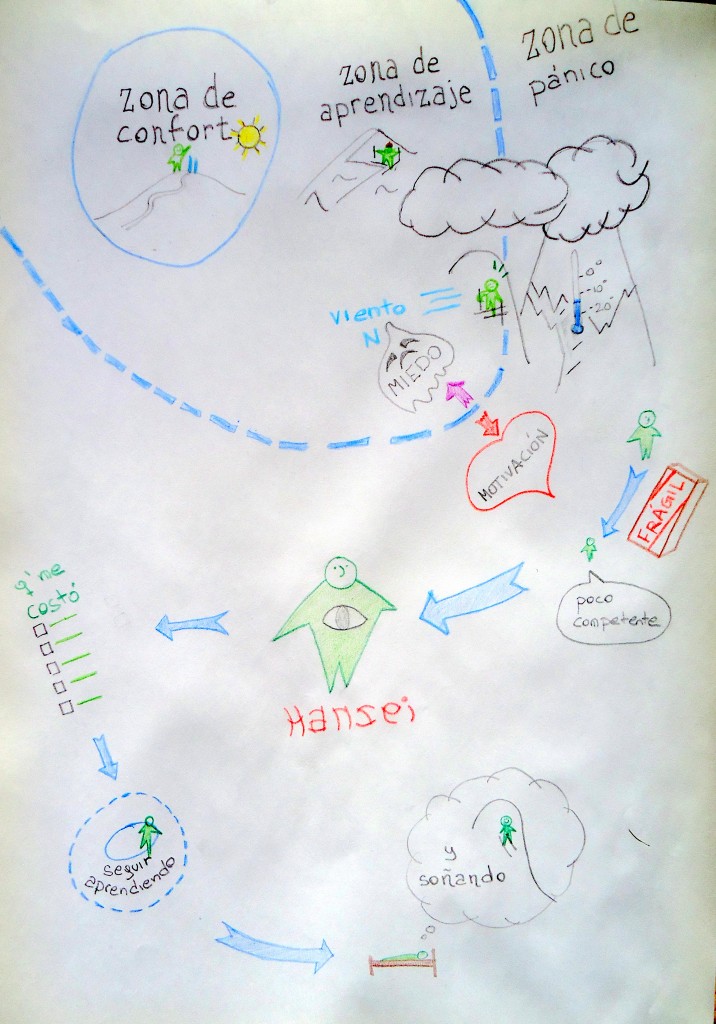 zona de
confort
zona de
aprendizaje
zona de
pánico
0°
-10°
-20°
viento
N
MIEDO
MOTIVACIÓN
FRÁGIL
poco
competente
q' me
costó
Hansei
seguir
aprendiendo
y
soñando